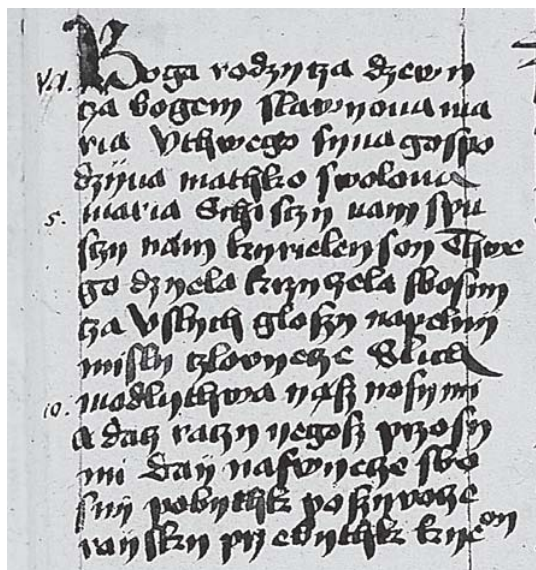 va. Boga rodzycza dzewy
cza bogem slawyona ma
ria Vthwego syna gospo
dzyna mathko swolona
5. maria Sczhi sczy nam spu
sczy nam kyrieleyson Thwe
go dzyela krzyczela bosim
cza Vslych glossy napelny
misly czlovyecze Slich
10. modlythwa yąsz nosymi
a dacz raczy yegosz prosy
mi day naswyecze sbo
sny pobyth posziwocze
rayski przebyth kyeon